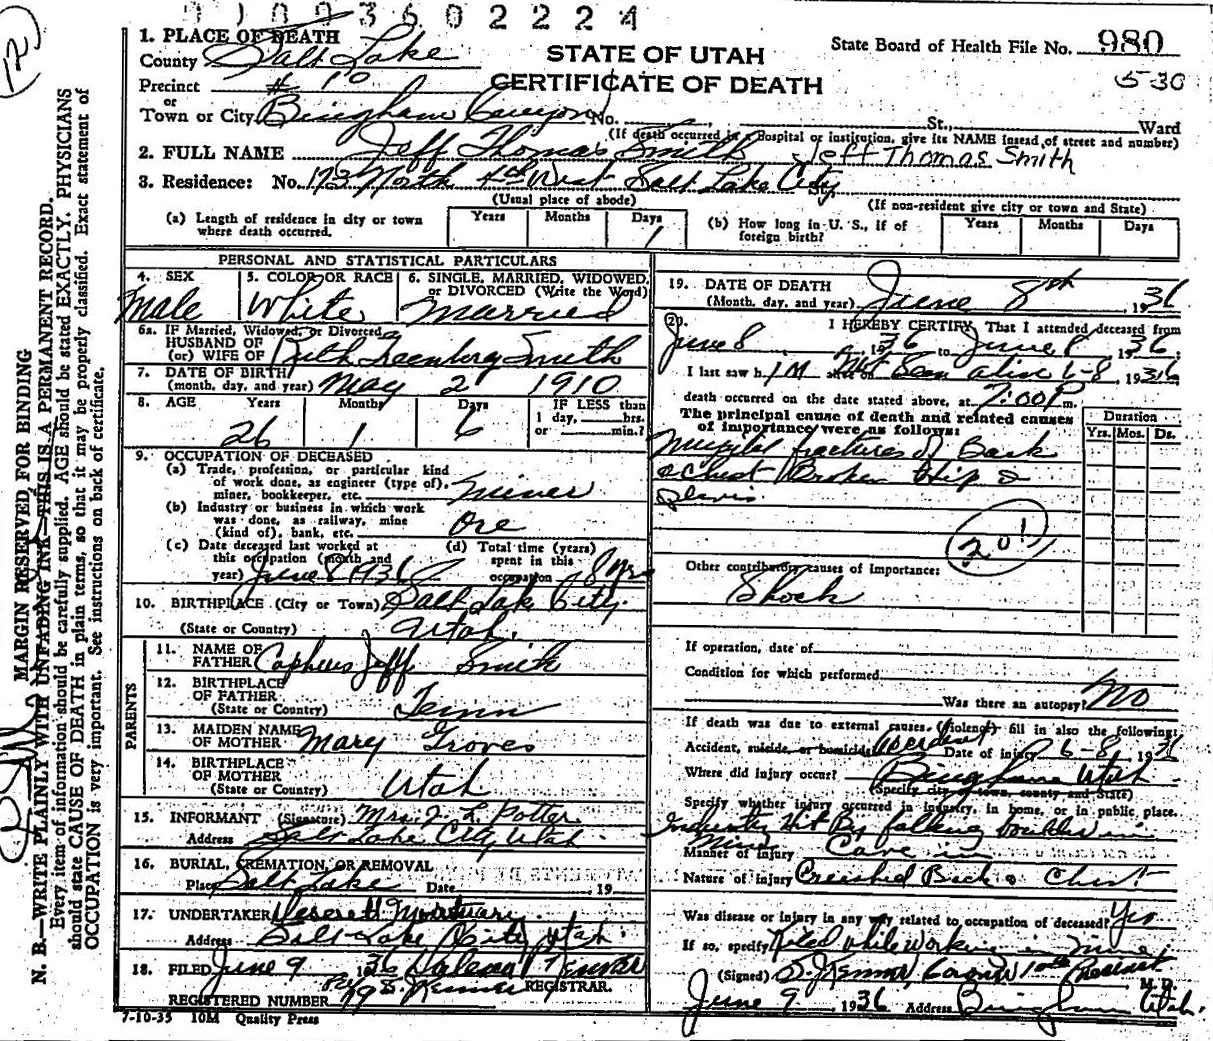 0 1 0 0 3 6 0 2 2 2 4
1. PLACE OF DEATH
County Salt Lake
STATE OF UTAH
CERTIFICATE OF DEATH
State Board of Health File No. 980
5-30
Precinct # 10
or
Town or City Bingham Canyon No. St., Ward
(If death occurred in a hospital or institution, give its NAME instead of street and number)
2. FULL NAME Jeff Thomas Smith Jeff Thomas Smith
3. Residence: No. 173 North 4th West Salt Lake City
(Usual place of abode)
(If non-resident give city or town and State)
(a) Length of residence in city or town where death occurred. Years Months Days 1
(b) How long in U. S., if of foreign birth? Years Months Days
PERSONAL AND STATISTICAL PARTICULARS
4. SEX Male
5. COLOR OR RACE White
6. SINGLE, MARRIED, WIDOWED, or DIVORCED (Write the Word) Married
6a. IF Married, Widowed, or Divorced
HUSBAND OF
(or) WIFE OF Ruth Smith
7. DATE OF BIRTH
(month, day, and year) May 2 1910
8. AGE Years 26 Months 1 Days 6
IF LESS than
1 day, hrs.
or min.?
9. OCCUPATION OF DECEASED
(a) Trade, profession, or particular kind
of work done, as engineer (type of),
miner, bookkeeper, etc. Miner
(b) Industry or business in which work
was done, as railway, mine
(kind of), bank, etc. Ore
(c) Date deceased last worked at
this occupation (month and
year) June 8 1936
(d) Total time (years)
spent in this
occupation 8 yrs
10. BIRTHPLACE (City or Town) Salt Lake City
(State or Country) Utah.
PARENTS
11. NAME OF
FATHER Jeff Smith
12. BIRTHPLACE
OF FATHER
(State or Country) Tenn
13. MAIDEN NAME
OF MOTHER Mary Groves
14. BIRTHPLACE
OF MOTHER
(State or Country) Utah
15. INFORMANT (Signature) Mrs. J. L. Potter
Address Salt Lake City Utah
16. BURIAL, CREMATION, OR REMOVAL
Place Salt Lake Date 19
17. UNDERTAKER Deseret Mortuary
Address Salt Lake City Utah.
18. FILED June 9 1936 REGISTRAR.
REGISTERED NUMBER
7-10-35 10M Quality Press
19. DATE OF DEATH
(Month, day, and year) June 8th 1936
20. I HEREBY CERTIFY, That I attended deceased from
June 8, 1936 to June 8, 1936.
I last saw h im alive on Not Seen alive 6-8, 1936
death occurred on the date stated above, at 7:00 P m.
The principal cause of death and related causes
of importance were as follows:
Duration
Yrs. Mos. Ds.
fractures of Back
& Chest Broken Hip &
201
Other contributory causes of importance:
Shock
If operation, date of
Condition for which performed
Was there an autopsy? No
If death was due to external causes, (violence) fill in also the following:
Accident, suicide, or homicide Accident Date of injury 6-8, 1936
Where did injury occur? Bingham Utah
(Specify city or town, county and State)
Specify whether injury occurred in industry, in home, or in public place.
Industry Hit By falling in
Mine
Manner of Injury Cave in
Nature of Injury Crushed Back & Chest
Was disease or injury in any way related to occupation of deceased? Yes
If so, specify Killed while working in mine
(Signed) S. Kenner, Coroner 10th Precinct M. D.
June 9 1936 Address Bingham Utah.
MARGIN RESERVED FOR BINDING
N. B.—WRITE PLAINLY WITH UNFADING INK—THIS IS A PERMANENT RECORD.
Every item of information should be carefully supplied. AGE should be stated EXACTLY. PHYSICIANS
should state CAUSE OF DEATH in plain terms, so that it may be properly classified. Exact statement of
OCCUPATION is very important. See instructions on back of certificate.